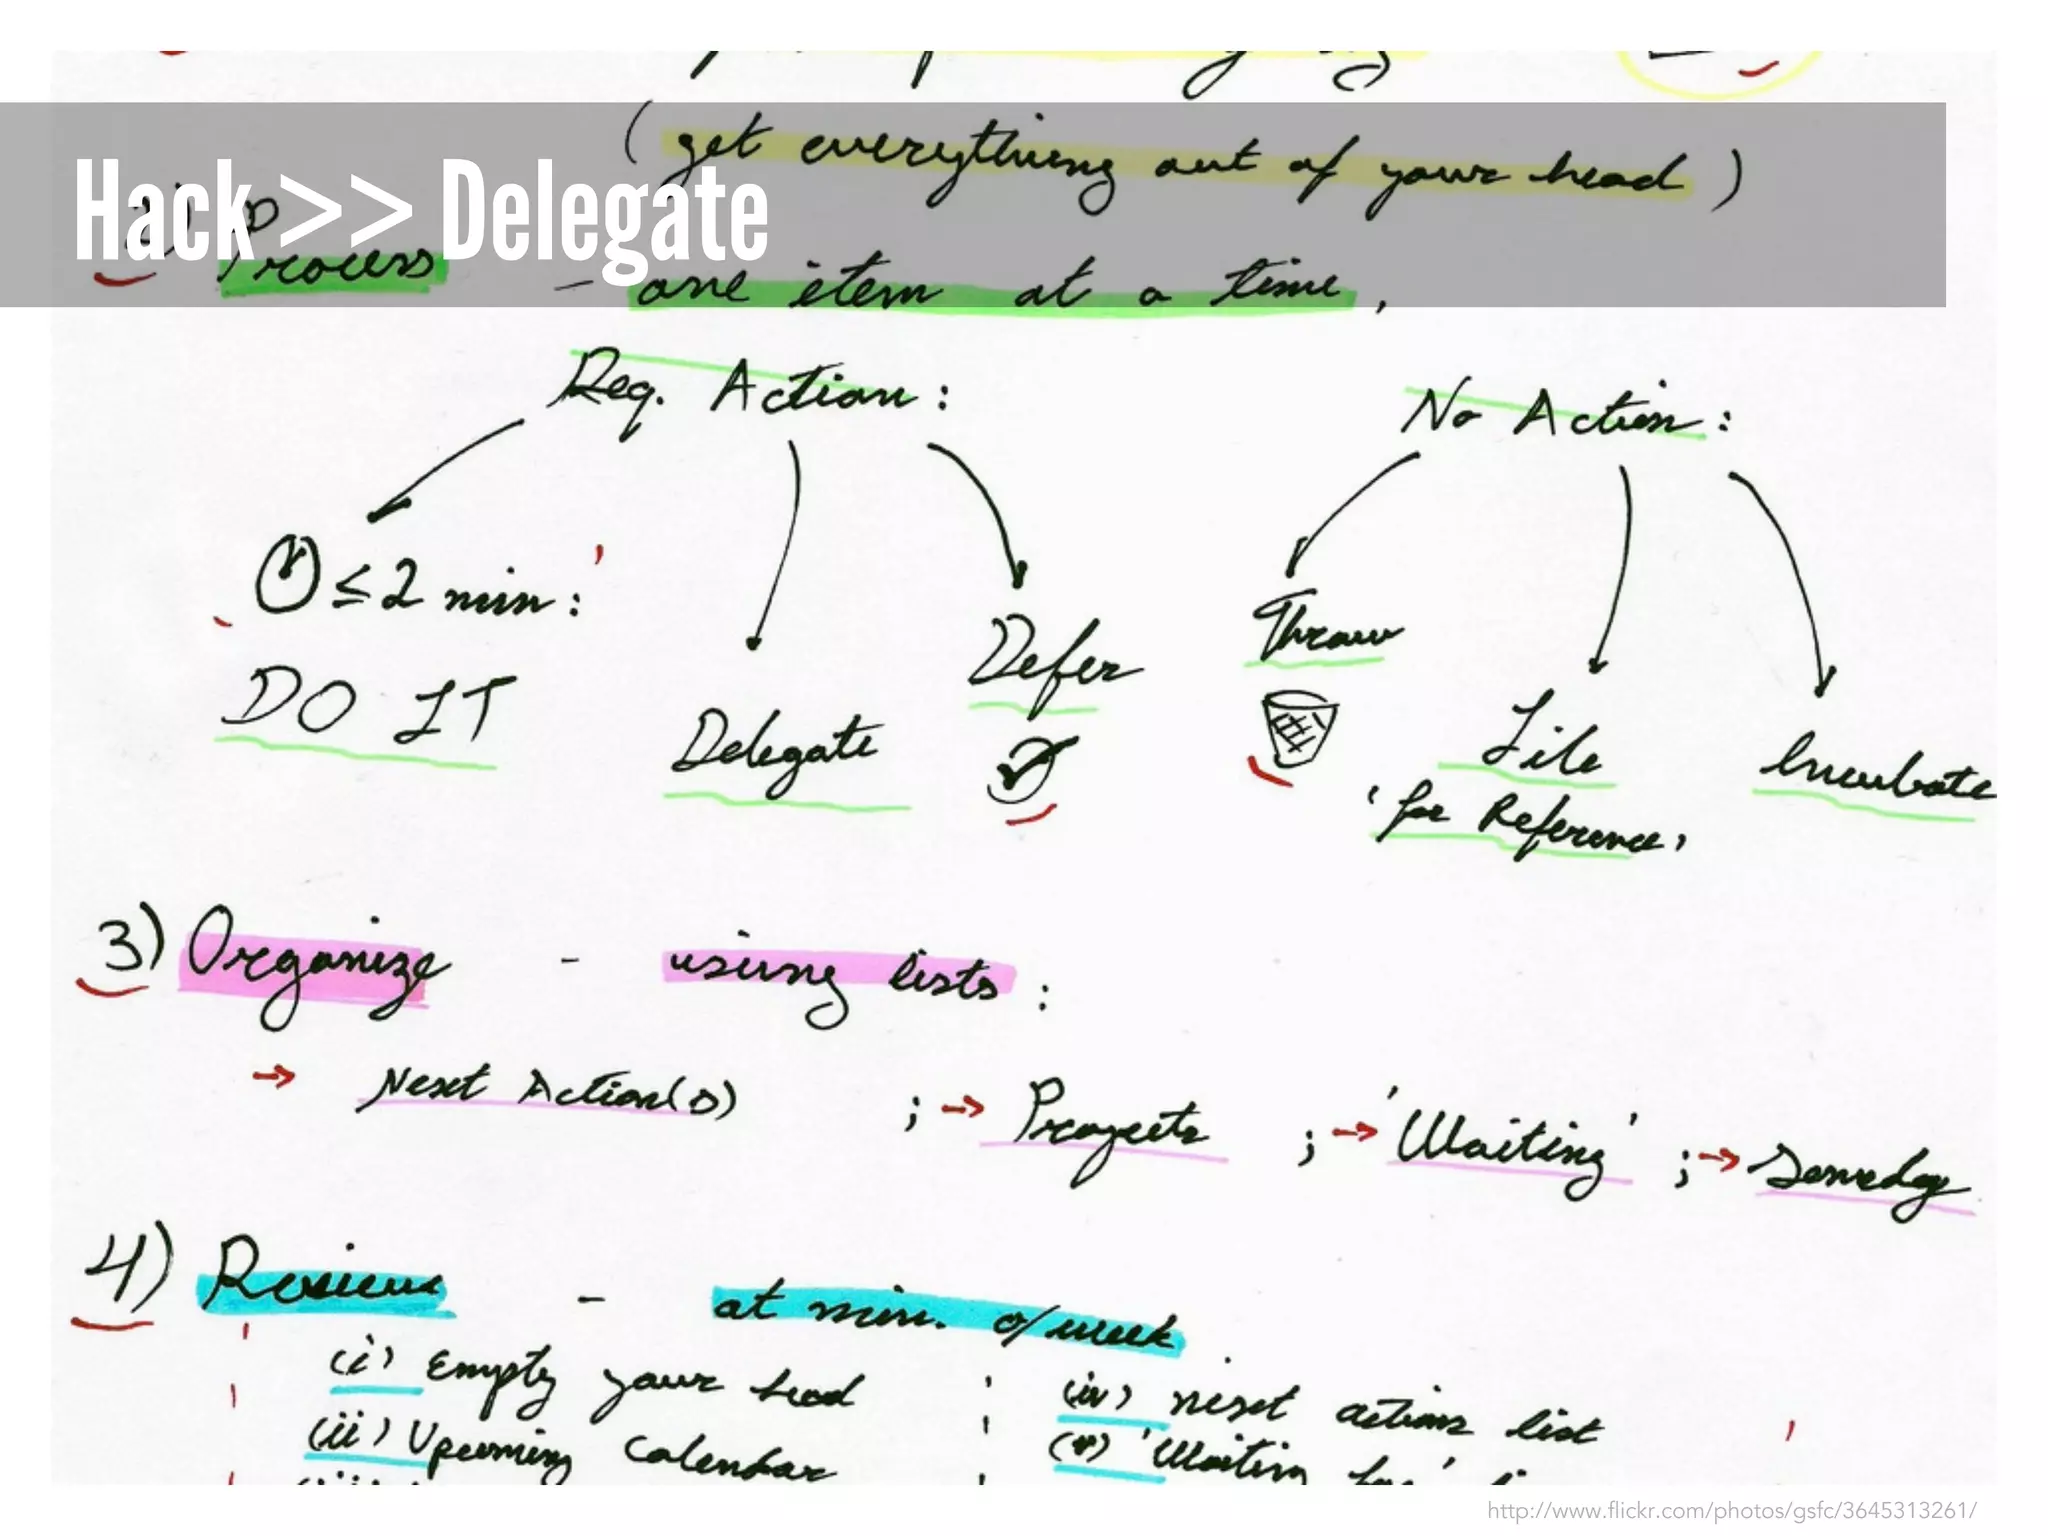 (get everything out of your head)
Hack >> Delegate
2) Process - one item at a time.
Req. Action: No Action:
≤ 2 min:
DO IT
Delegate
Defer
Throw
File
'for Reference'
Incubate
3) Organize - using lists:
→ Next Action(s) ; → Projects ; → 'Waiting' ; → Someday
4) Review - at min. o/week.
(i) Empty your head
(ii) Upcoming calendar
(iv) next actions list
(v) 'Waiting for'
http://www.flickr.com/photos/gsfc/3645313261/